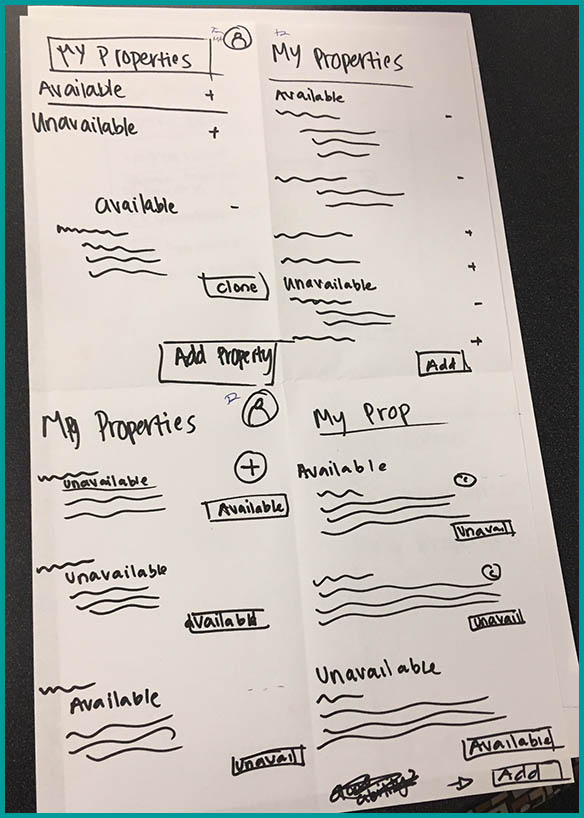 My Properties
Available +
Unavailable +
Available -
Clone
Add Property
My Properties
Available
-
-
+
+
Unavailable
-
+
Add
My Properties
+
Unavailable
Available
Unavailable
Available
Available
Unavail
My Prop
Available
Unavail
Unavail
Unavailable
Available
Add